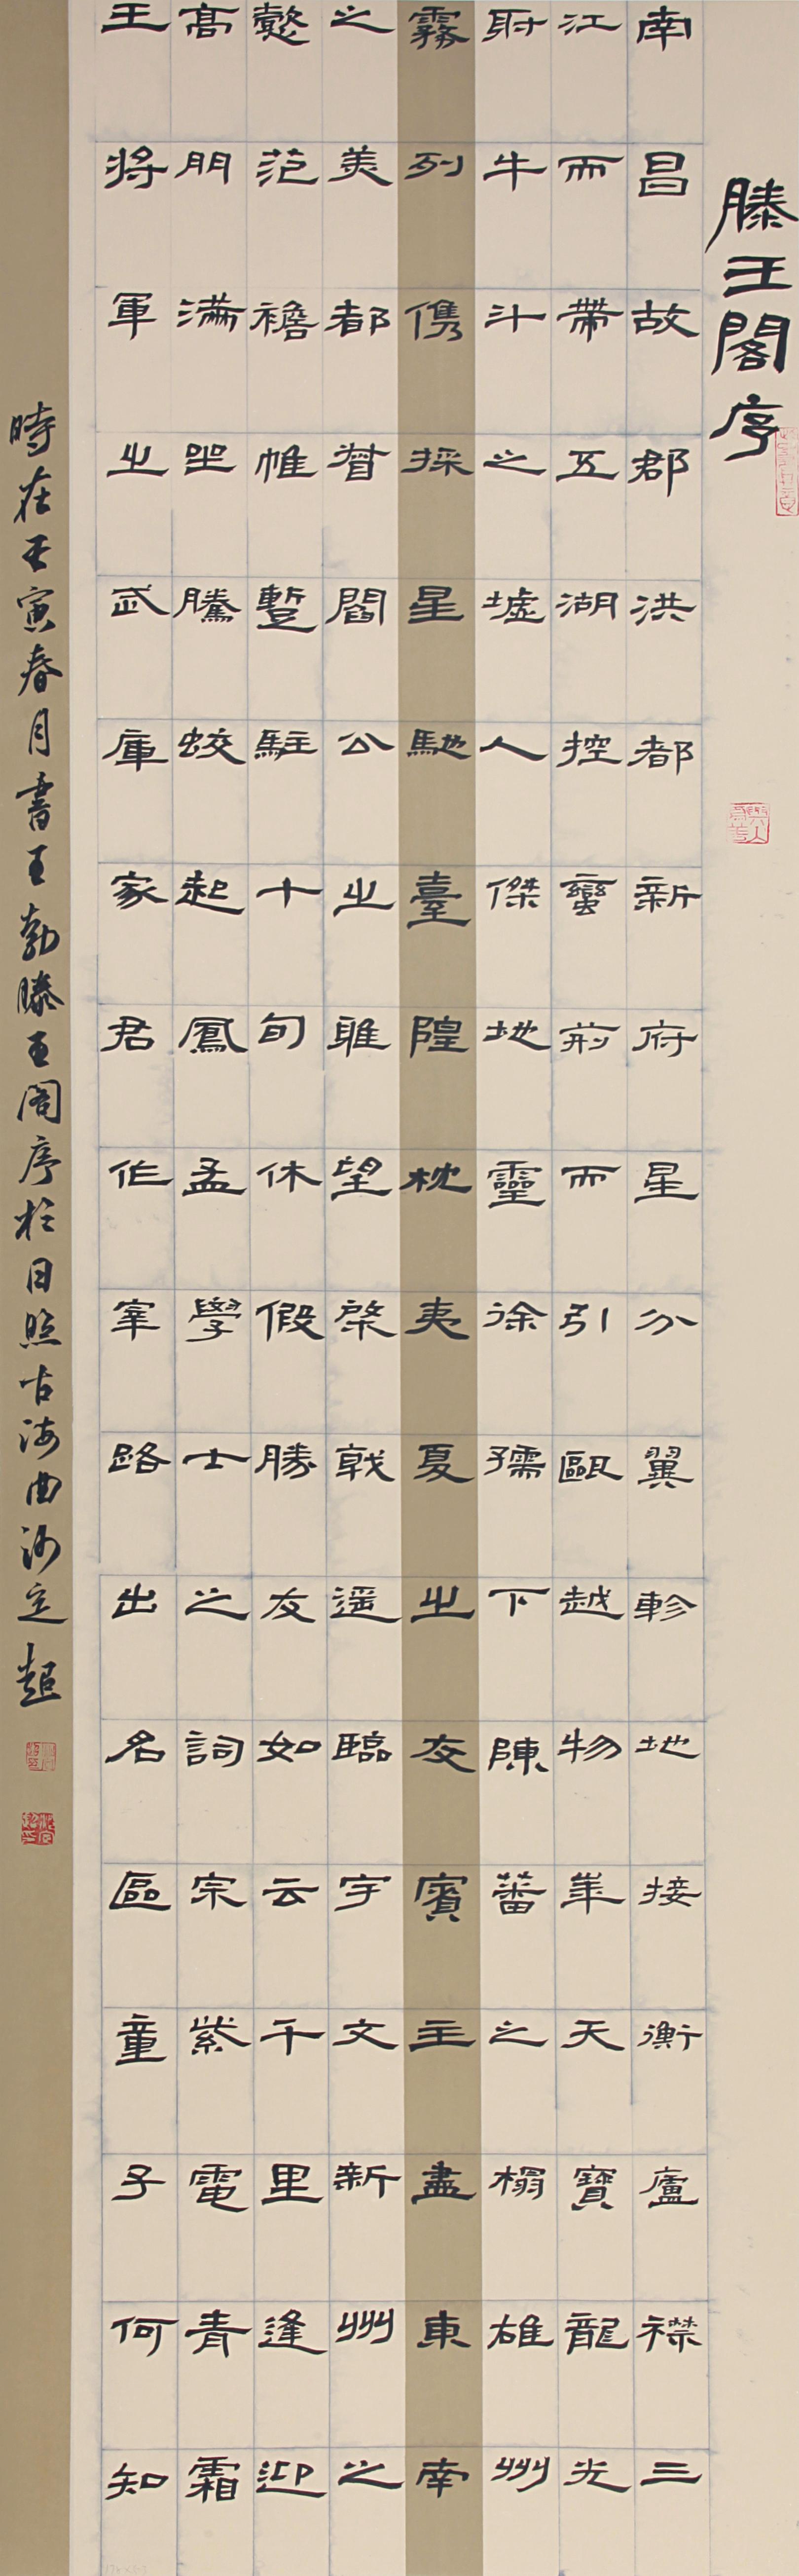 滕王閣序
南昌故郡洪都新府星分翼軫地接衡廬襟三
江而帶五湖控蠻荊而引甌越物華天寶龍光
射牛斗之墟人傑地靈徐孺下陳蕃之榻雄州
霧列儁採星馳臺隍枕夷夏之交賓主盡東南
之美都督閻公之雅望棨戟遥臨宇文新州之
懿范襜帷蹔駐十旬休假勝友如云千里逢迎
高朋滿坐騰蛟起鳳孟學士之詞宗紫電青霜
王將軍之武庫家君作宰路出名區童子何知
時在壬寅春月書王勃滕王阁序於日照古海曲